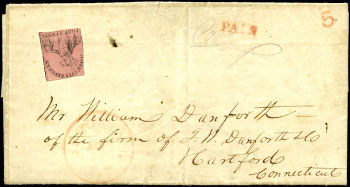 PAID
5
Mr William Danforth
of the firm of J. W. Danforth & Co
Hartford
Connecticut